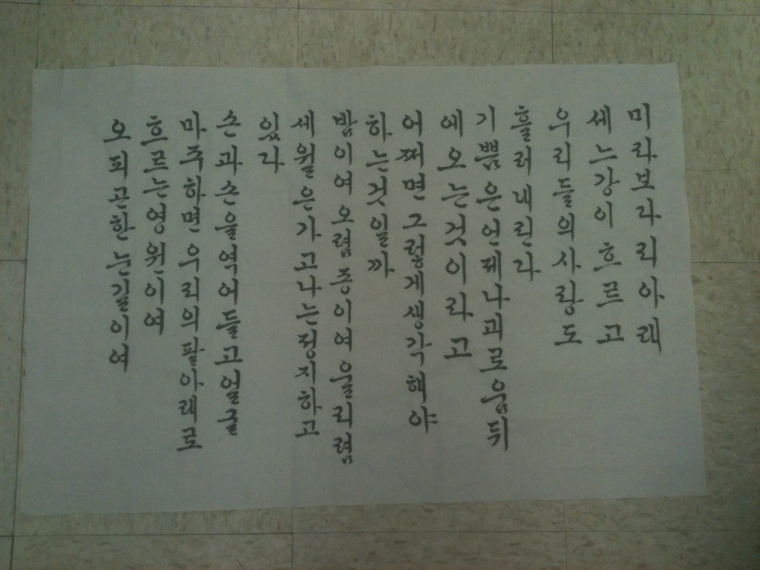 미라보다리아래
세느강이흐르고
우리들의사랑도
흘러내린다
기쁨은언제나괴로움뒤
에오는것이라고
어쩌면그렇게생각해야
하는것일까
밤이여오렴종이여울리렴
세월은가고나는정지하고
있다
손과손을엮어들고얼굴
마주하면우리의팔아래로
흐르는영원이여
오피곤한눈길이여